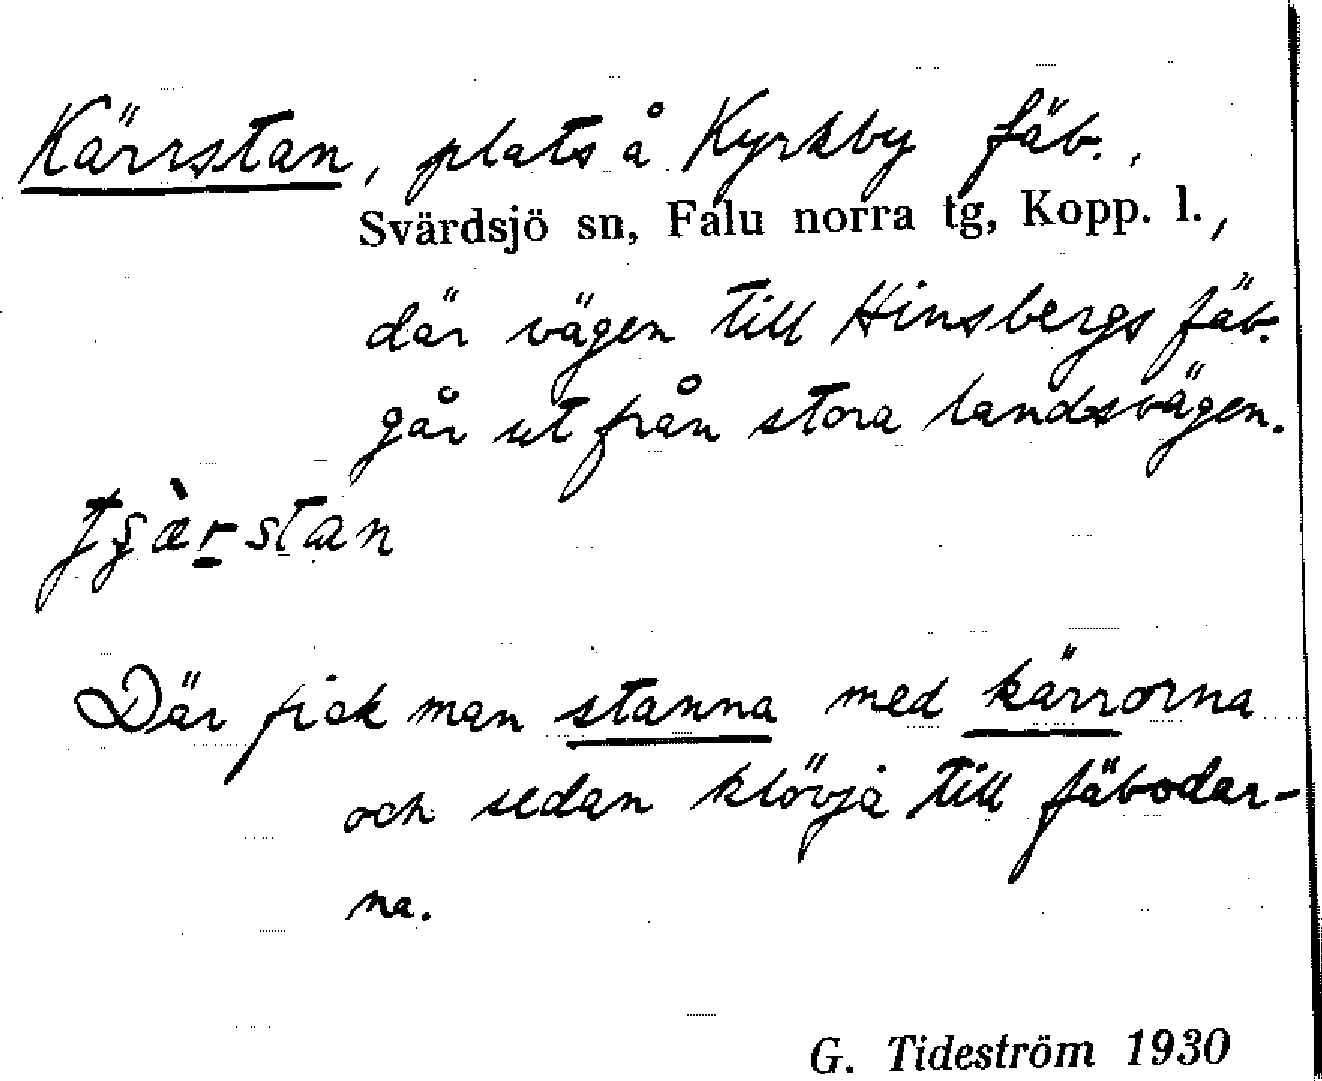 Kärrstan, plats å Kyrkby fäb.,
Svärdsjö sn, Falu norra tg, Kopp. l.,
där vägen till Hinsbergs fäb.
går ut från stora landsvägen.
Där fick man stanna med kärrorna
och sedan klövja till fäbodar-
na.
G. Tideström 1930